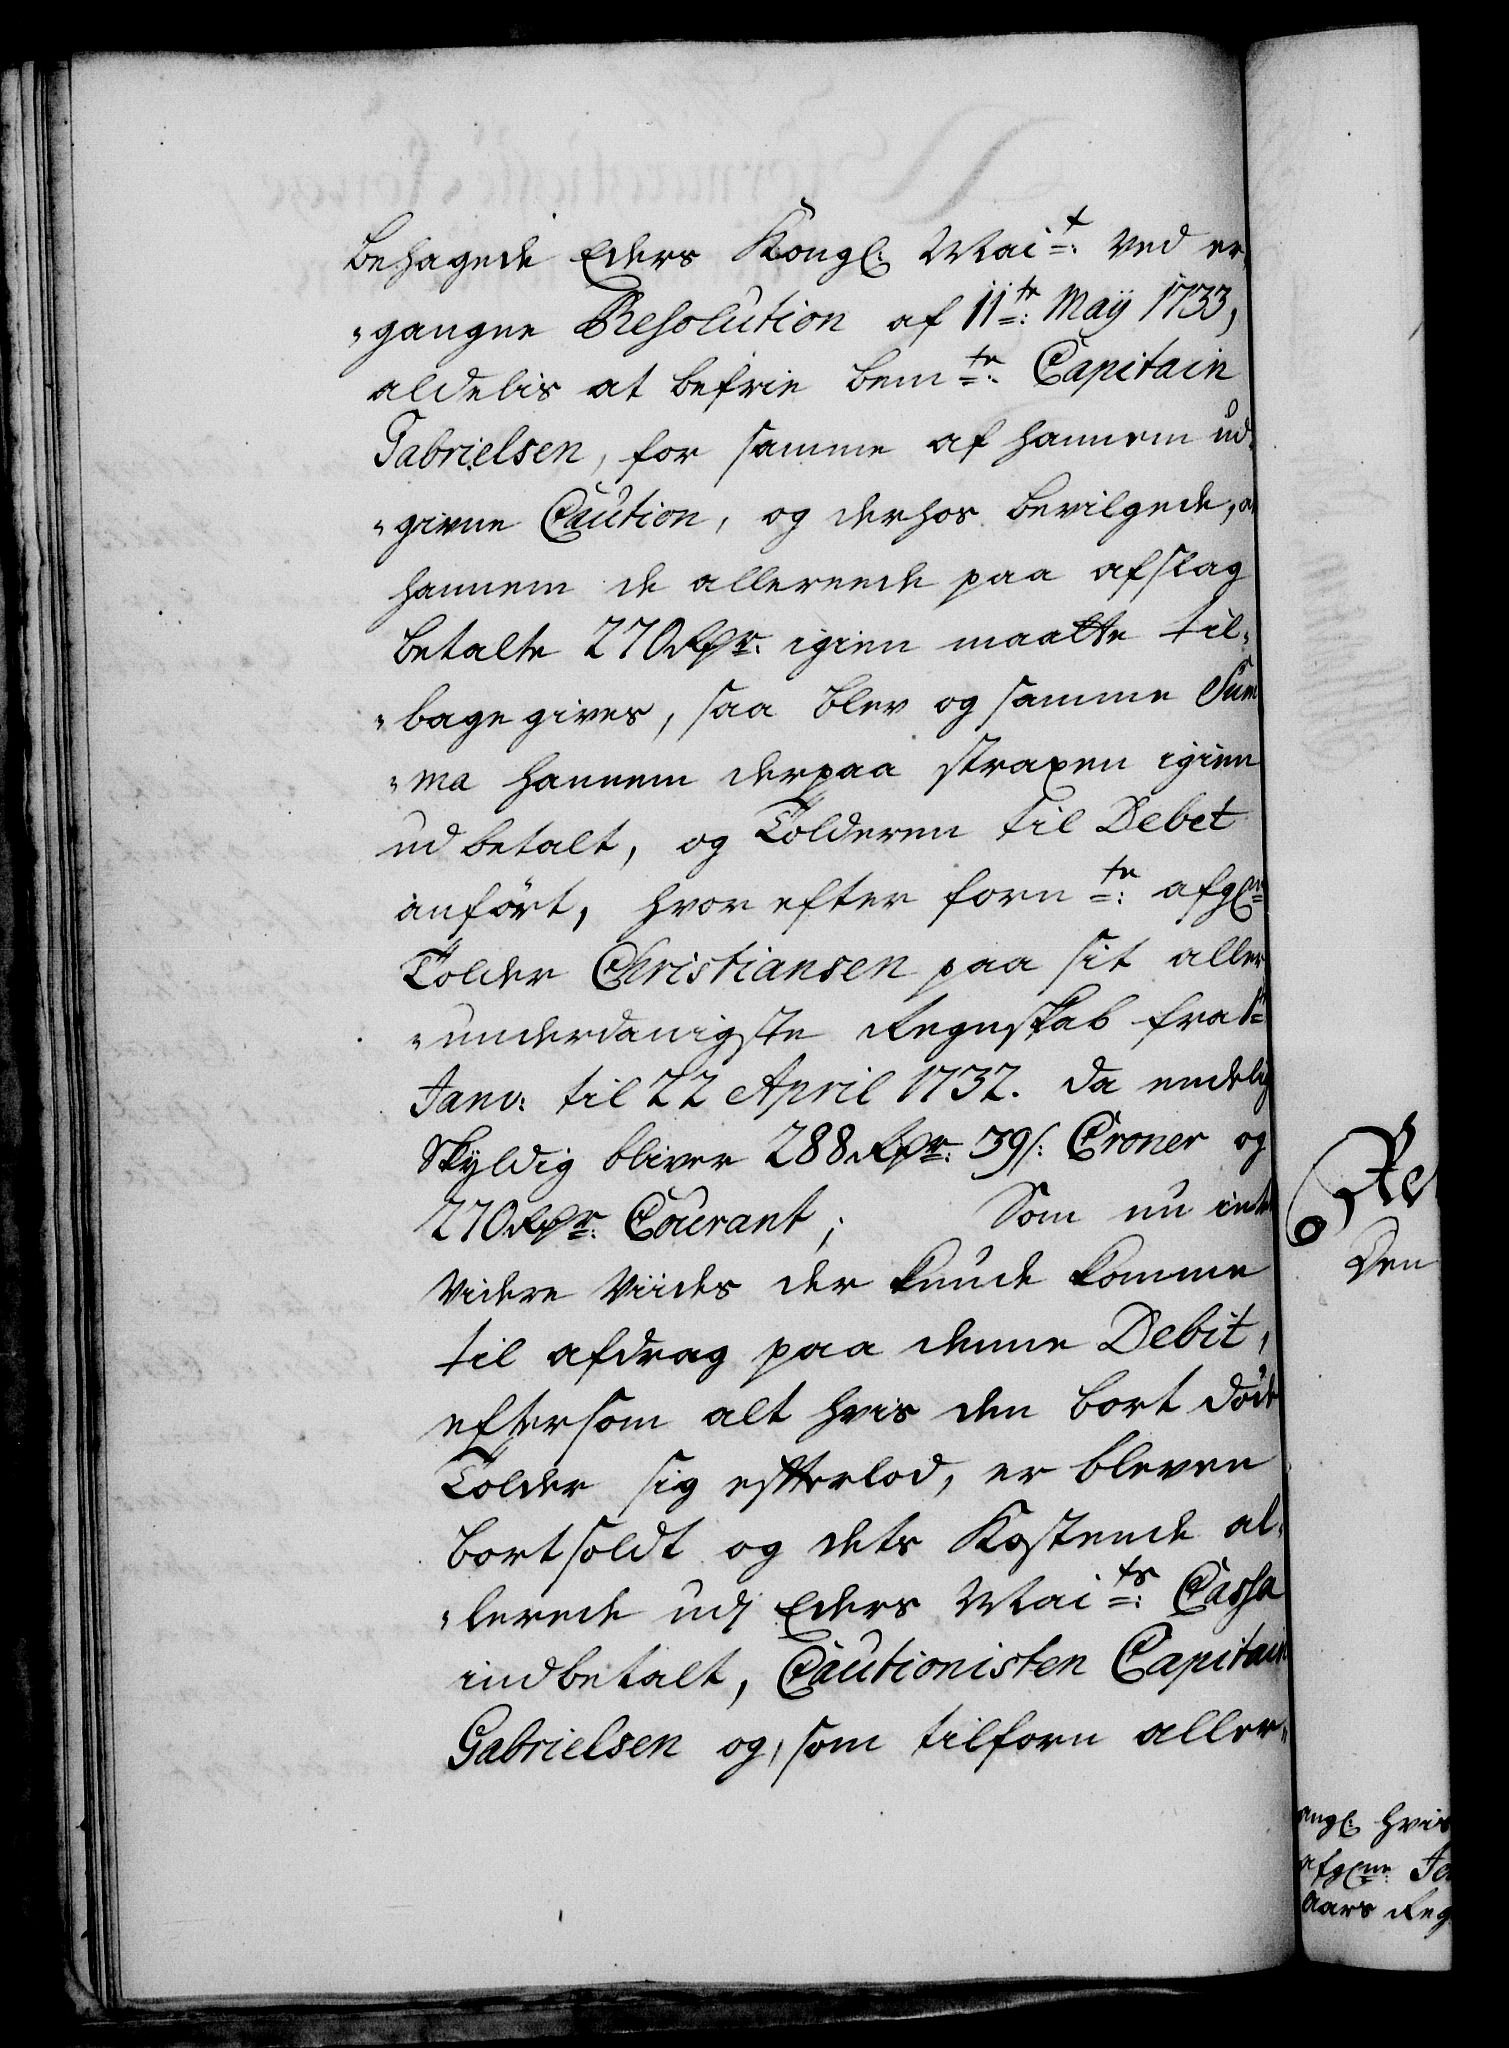 behagede Eders Kongl: Mai:t ved er,
„gangne Resolution af 11te: Maÿ 1733,
aldelis at befrie bemte: Capitain
Gabrielsen, for samme af hannem ud„
„givne Caution, og derhos bevilgede, a
hannem de allereede paa afslag
betalte 270 Rdr. igien maatte til„
„bage gives, saa blev og samme Sum
„ma hannem derpaa straxen igien
udbetalt, og Tolderen til Debet
anført, hvor efter fornte: afgl:
Tolder Christiansen paa sit aller
„underdanigste Regnskab fra 1te
Janv: til 22 April 1732. da endelig
skyldig bliver 288 Rdr: 39 s: Croner og
270 Rdr: Courant; Som nu intet
videre viides der kunde komme
til afdrag paa denne Debit,
eftersom alt hvis den bort døde
Tolder sig efterlod, er bleven
bortsoldt og dets Kostende al„
„lerede udi Eders Mai:ts Cassa
indbetalt, Cautionisten Capitain
Gabrielsen og, som tilforn aller„
Den
angl: hvis
afglne: Jo
Aars Reg